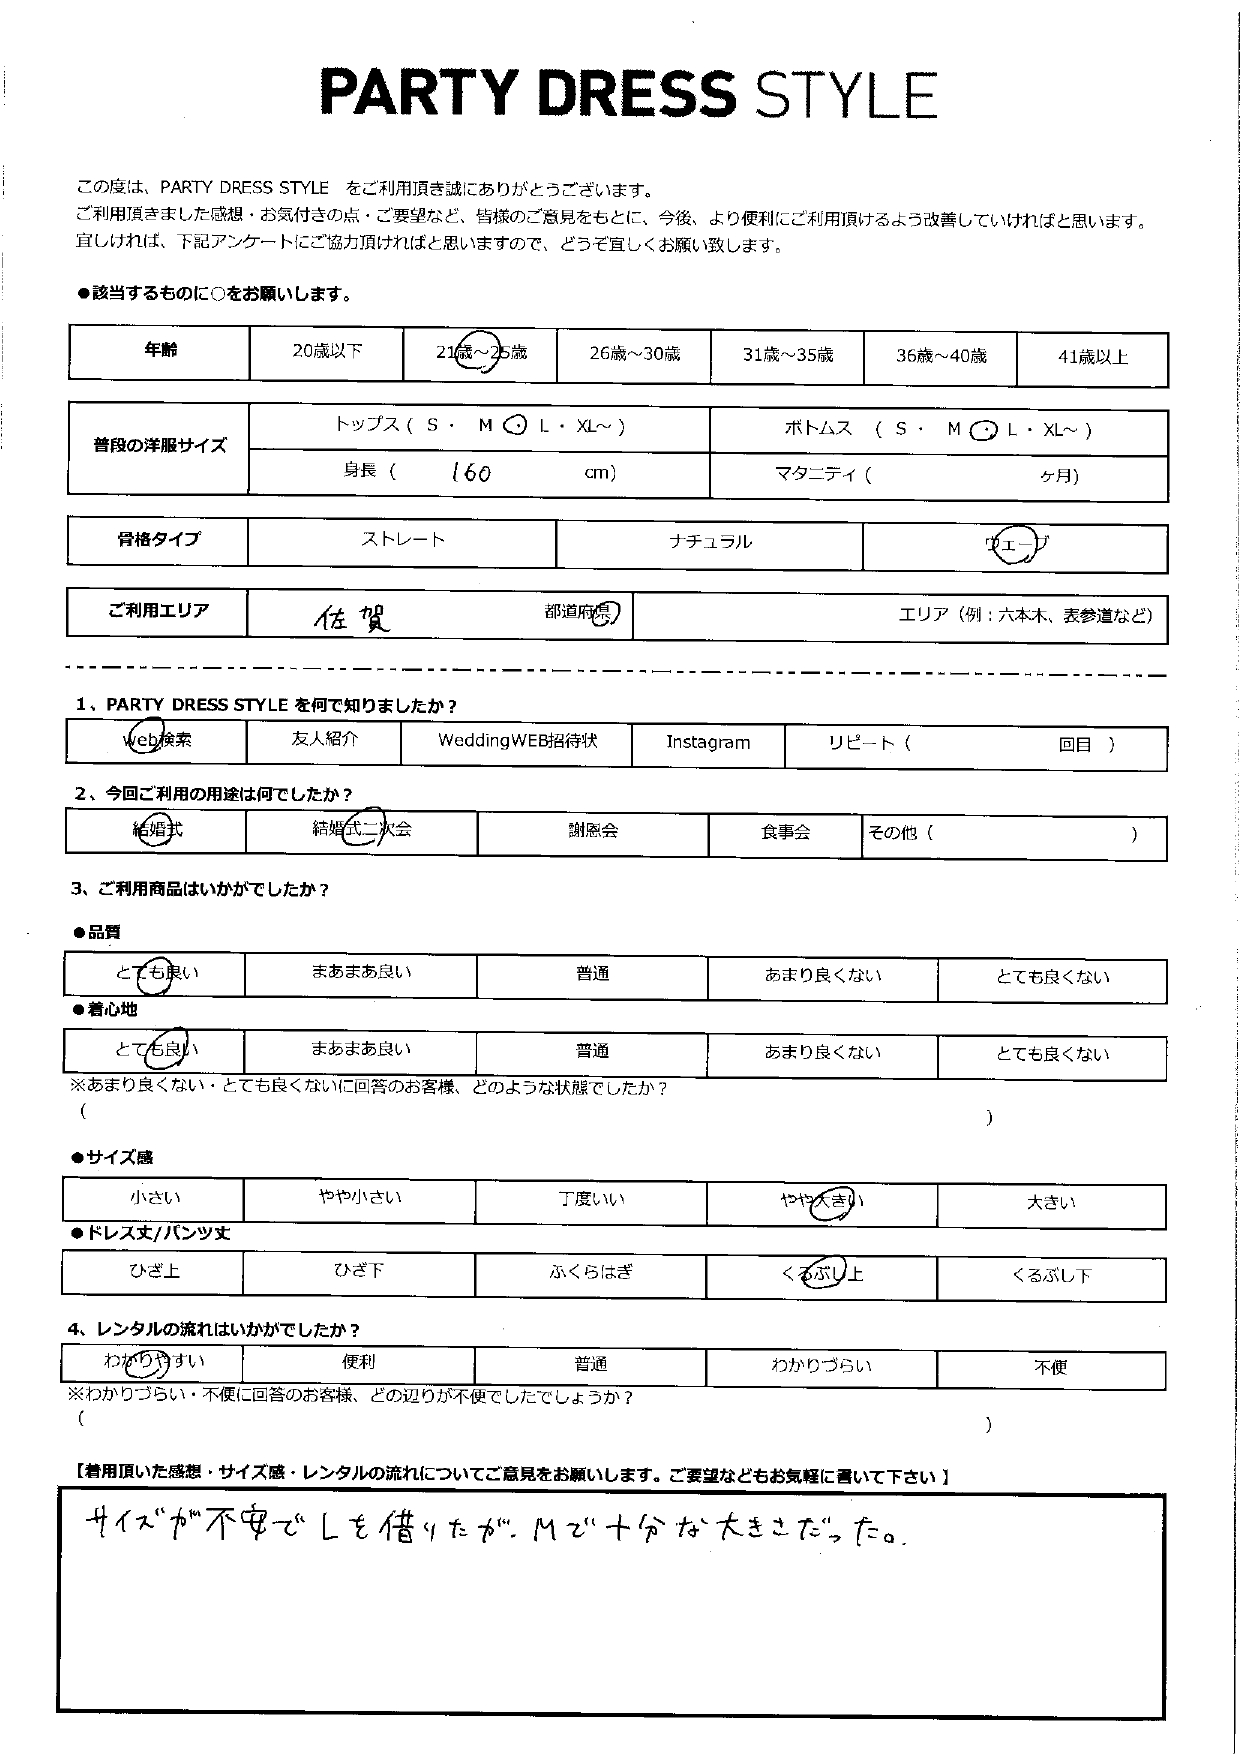 PARTY DRESS STYLE
この度は、PARTY DRESS STYLE をご利用頂き誠にありがとうございます。
ご利用頂きました感想・お気付きの点・ご要望など、皆様のご意見をもとに、今後、より便利にご利用頂けるよう改善していければと思います。
宜しければ、下記アンケートにご協力頂ければと思いますので、どうぞ宜しくお願い致します。
●該当するものに○をお願いします。
年齢 20歳以下 21歳～25歳 26歳～30歳 31歳～35歳 36歳～40歳 41歳以上
普段の洋服サイズ トップス ( S ・ M ・ L ・ XL～ ) ボトムス ( S ・ M ・ L ・ XL～ )
身長 ( 160 cm) マタニティ ( ヶ月)
骨格タイプ ストレート ナチュラル ウェーブ
ご利用エリア 佐賀 都道府県 エリア（例：六本木、表参道など）
1、PARTY DRESS STYLE を何で知りましたか？
Web検索 友人紹介 WeddingWEB招待状 Instagram リピート ( 回目 )
2、今回ご利用の用途は何でしたか？
結婚式 結婚式二次会 謝恩会 食事会 その他 ( )
3、ご利用商品はいかがでしたか？
●品質
とても良い まあまあ良い 普通 あまり良くない とても良くない
●着心地
とても良い まあまあ良い 普通 あまり良くない とても良くない
※あまり良くない・とても良くないに回答のお客様、どのような状態でしたか？
( )
●サイズ感
小さい やや小さい 丁度いい やや大きい 大きい
●ドレス丈/パンツ丈
ひざ上 ひざ下 ふくらはぎ くるぶし上 くるぶし下
4、レンタルの流れはいかがでしたか？
わかりやすい 便利 普通 わかりづらい 不便
※わかりづらい・不便に回答のお客様、どの辺りが不便でしたでしょうか？
( )
【着用頂いた感想・サイズ感・レンタルの流れについてご意見をお願いします。ご要望などもお気軽に書いて下さい】
サイズが不安でLを借りたが、Mで十分な大きさだった。